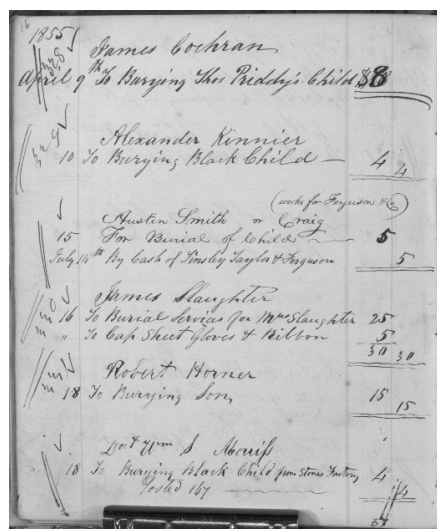 16
1855
James Cochran
April 9th To Burying Thos Priddy's Child $8
Alexander Kinnier
10 To Burying Black Child — 4 4
(works for Ferguson &Co)
Austin Smith or Craig
15 For Burial of Child 5
July 14th By Cash of Tinsley Taylor & Ferguson 5
James Slaughter
16 To Burial Services for Mrs Slaughter 25
" To Cap Sheet Gloves & Ribbon 5
30 30
Robert Horner
18 To Burying Son 15
15
Doct Wm S Morriss
18 To Burying Black Child from Stones Factory 4
Posted 167 4